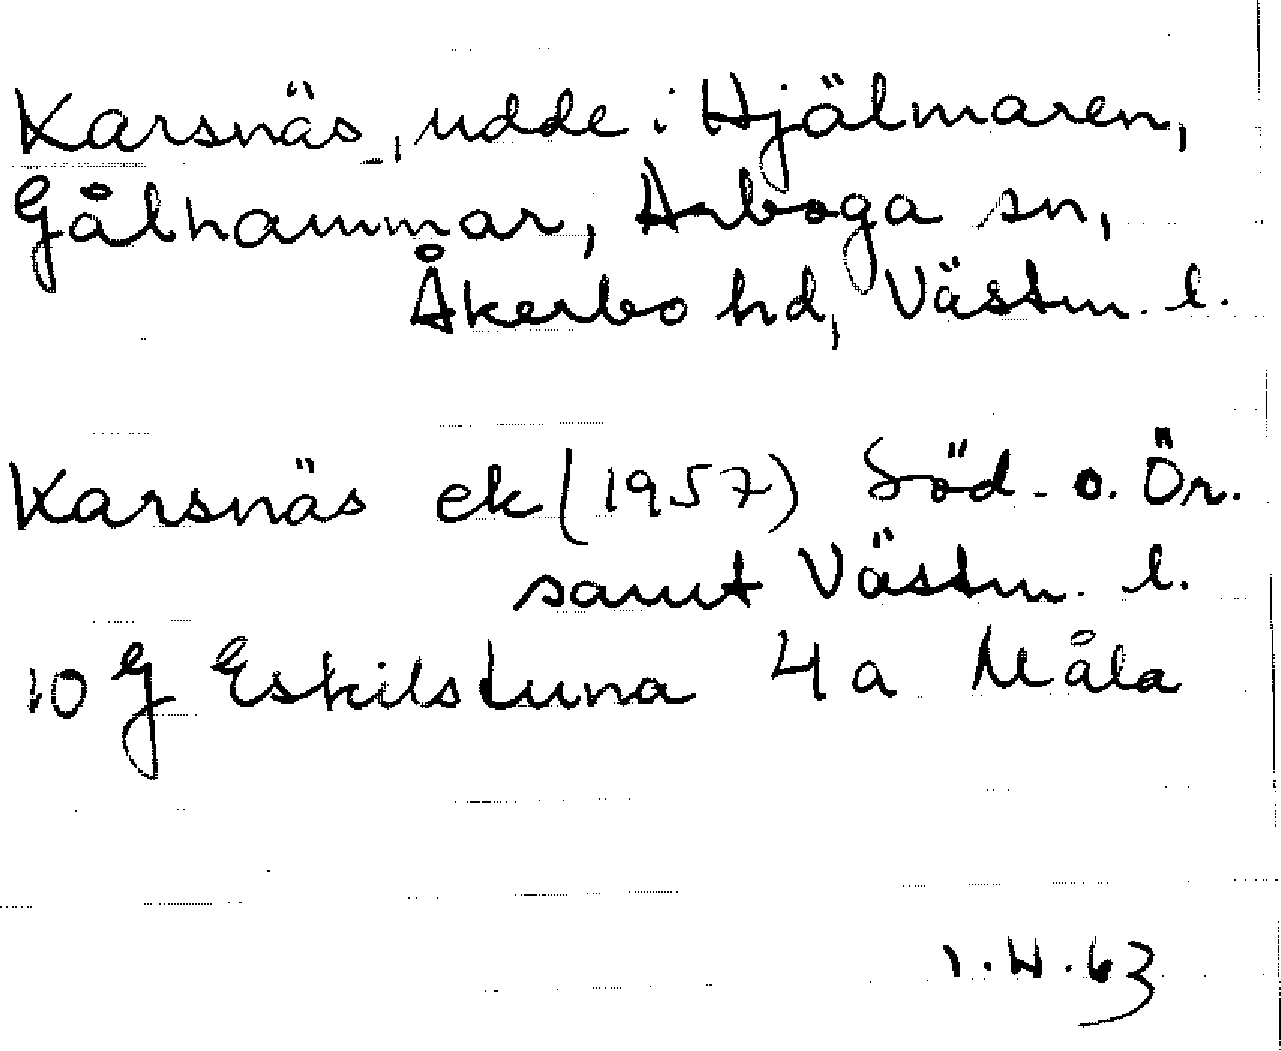 Karsnäs, udde i Hjälmaren,
Gålhammar, Arboga sn,
Åkerbo hd, Västm. l.
Karsnäs ek (1957) Söd. o. Ör.
samt Västm. l.
10 G Eskilstuna 4a Måla
I.W.63